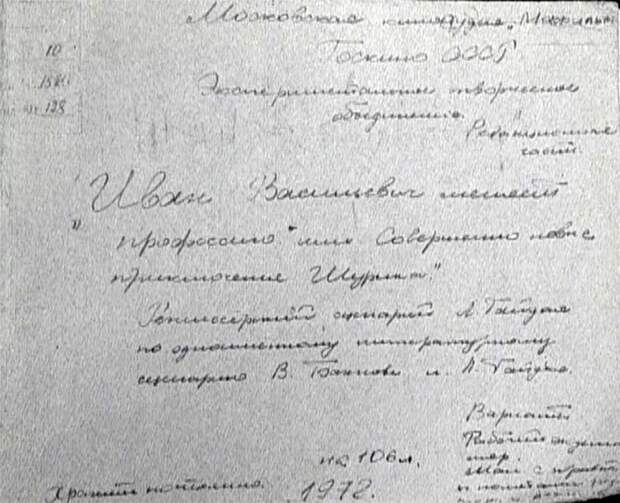 Московская киностудия "Мосфильм"
Госкино СССР
10
Экспериментальное творческое
158
объединение.
128
Редакционная
часть.
"Иван Васильевич меняет
профессию" или Совершенно новые
приключения Шурика."
Режиссерский сценарий Л. Гайдая
по одноименному литературному
сценарию В. Бахнова и Л. Гайдая.
Варианты.
Рабочий
на 106 л.
с правк
Хранить постоянно.
1972.